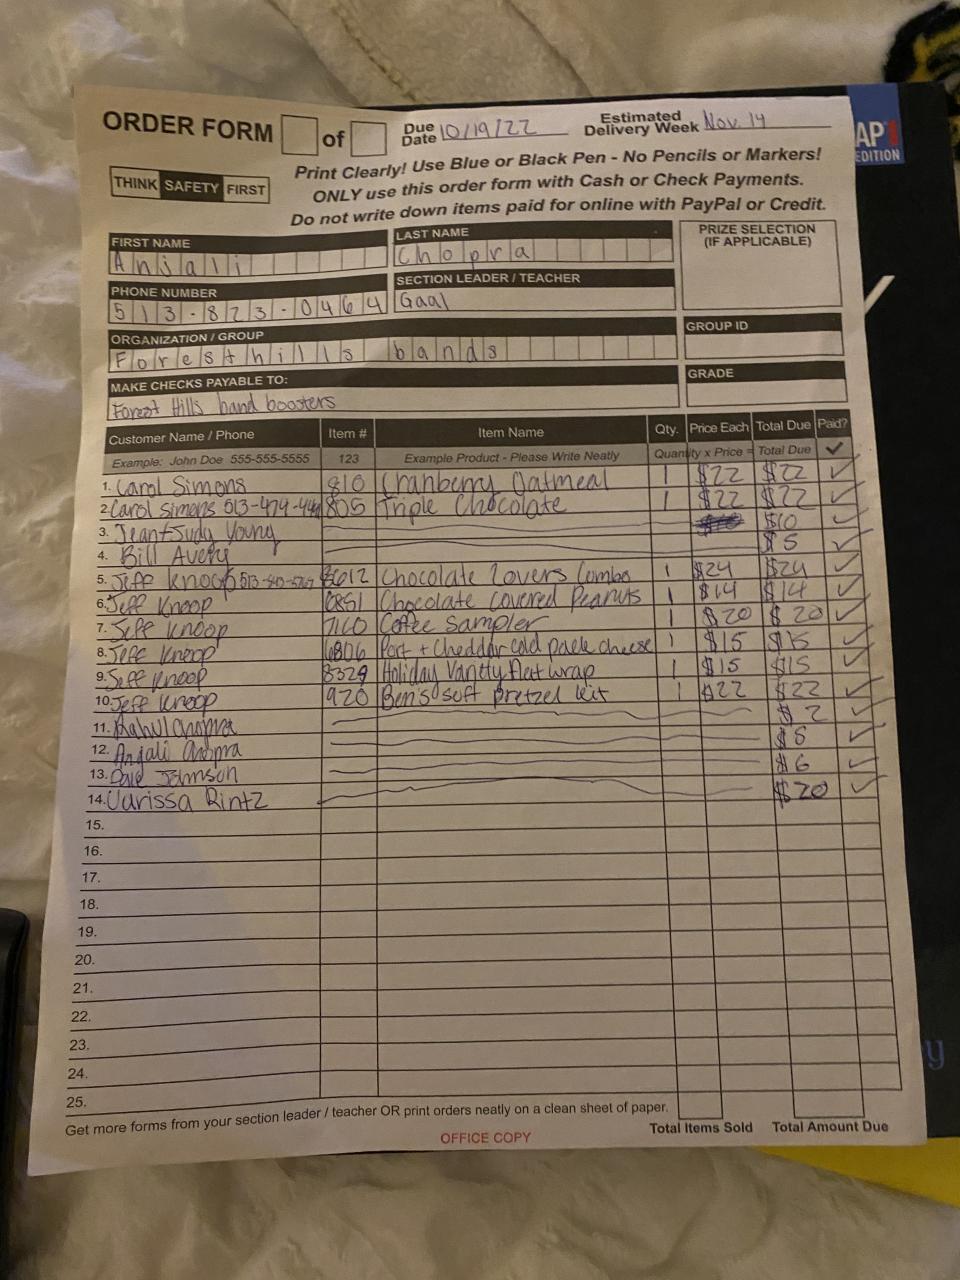 ORDER FORM of Due Date 10/19/22 Estimated Delivery Week Nov. 14
THINK SAFETY FIRST
Print Clearly! Use Blue or Black Pen - No Pencils or Markers!
ONLY use this order form with Cash or Check Payments.
Do not write down items paid for online with PayPal or Credit.
AP
EDITION
FIRST NAME LAST NAME PRIZE SELECTION (IF APPLICABLE)
Anjali Chopra
PHONE NUMBER SECTION LEADER / TEACHER
513-823-0464 Gaal
ORGANIZATION / GROUP GROUP ID
Foresthills bands
MAKE CHECKS PAYABLE TO: GRADE
Forest Hills band boosters
Customer Name / Phone Item # Item Name Qty. Price Each Total Due Paid?
Example: John Doe 555-555-5555 123 Example Product - Please Write Neatly Quantity x Price = Total Due ✓
1. Carol Simons 810 Cranberry Oatmeal 1 $22 $22 ✓
2. Carol Simons 513-474- 805 Triple Chocolate 1 $22 $22 ✓
3. Jean+Judy Young $10 ✓
4. Bill Avery $5 ✓
5. Jeff Knoop 513- 8612 Chocolate Lovers Combo 1 $24 $24 ✓
6. Jeff Knoop 6851 Chocolate covered Peanuts 1 $14 $14 ✓
7. Jeff Knoop 7160 Coffee Sampler 1 $20 $20 ✓
8. Jeff Knoop 6806 Port + Cheddar cold pack cheese 1 $15 $15 ✓
9. Jeff Knoop 8329 Holiday Vanity flat wrap 1 $15 $15 ✓
10. Jeff Knoop 920 Ben's soft pretzel kit 1 $22 $22 ✓
11. Rahul Chopra $2 ✓
12. Anjali Chopra $8 ✓
13. Dave Johnson $6 ✓
14. Rintz $20 ✓
15.
16.
17.
18.
19.
20.
21.
22.
23.
24.
25.
Get more forms from your section leader / teacher OR print orders neatly on a clean sheet of paper.
Total Items Sold Total Amount Due
OFFICE COPY